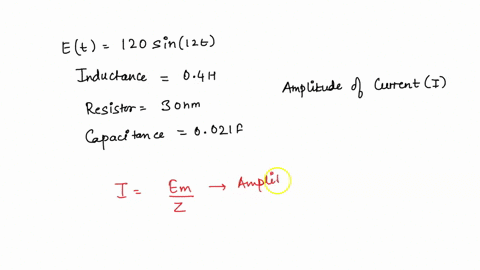 E(t) = 120 sin(12t)
Inductance = 0.4H
Amplitude of Current (I)
Resistor = 3 ohm
Capacitance = 0.021F
I = Em/Z → Amplit